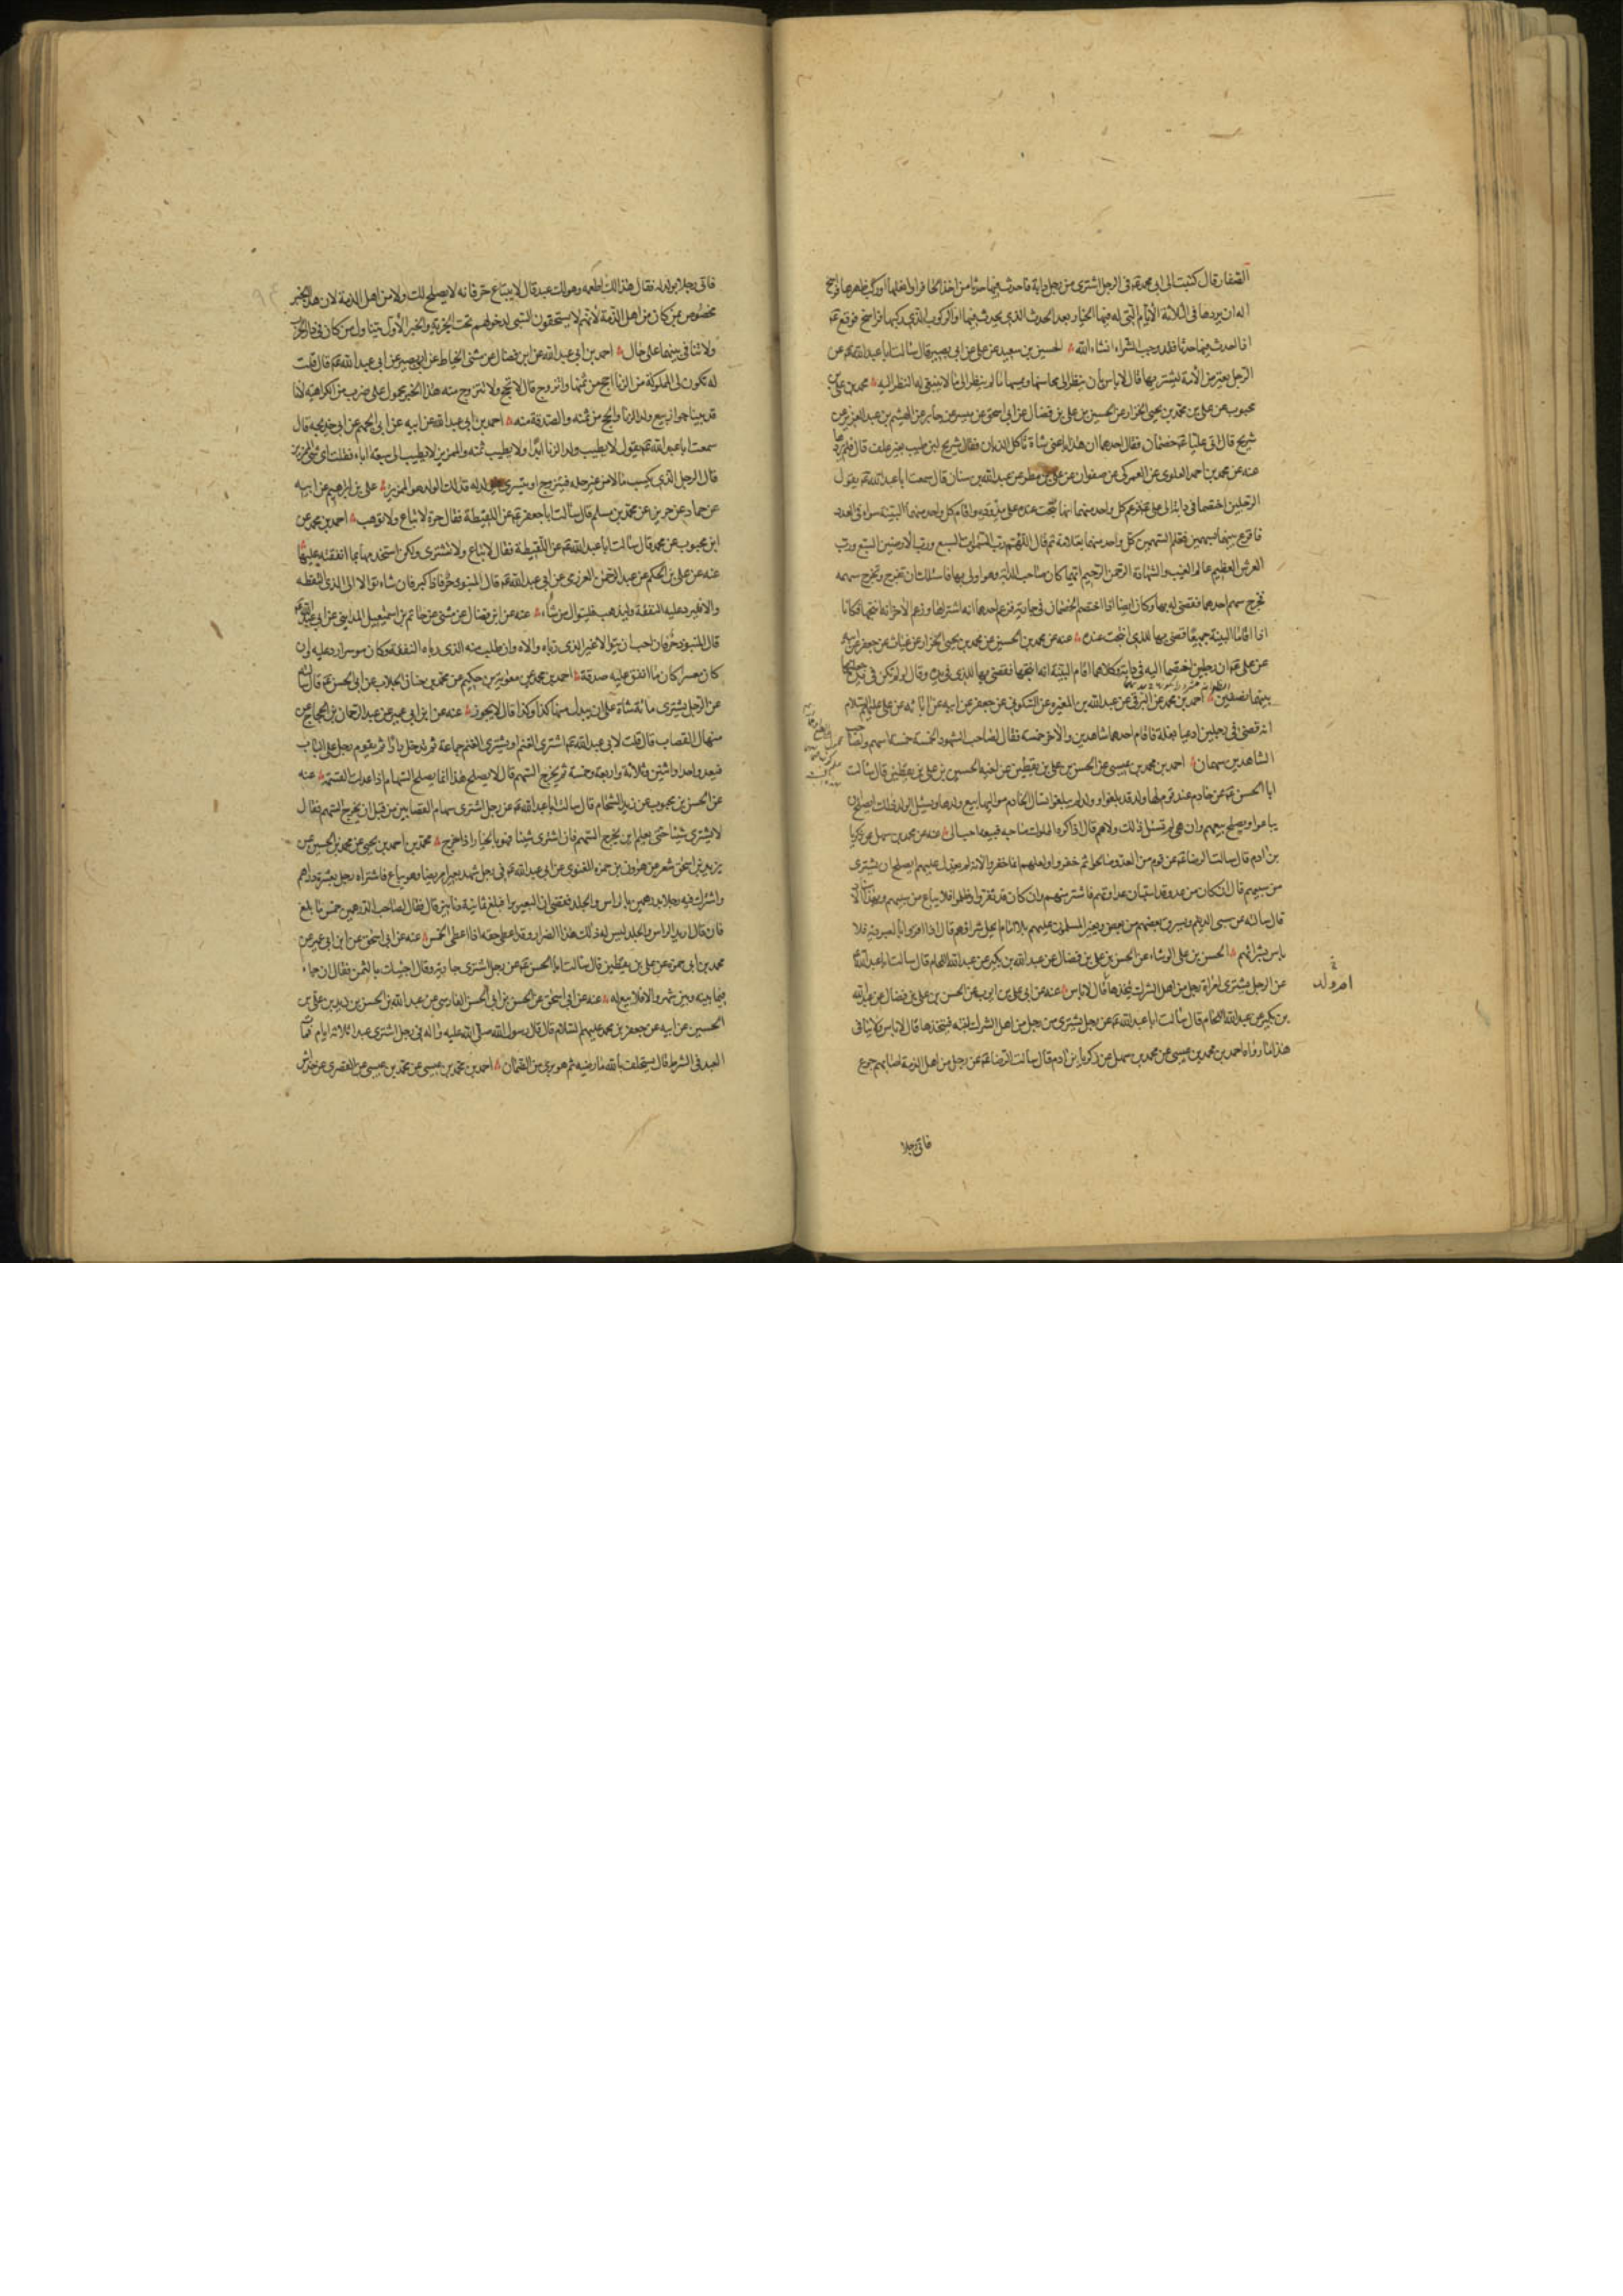 الصفار قال كتبت الى ابى محمد عم فى الرجل اشترى من رجل دابة فاحدث فيها حدثا من اخذ الحافر او انعلها او ركب ظهرها فراسخ
اله ان يردها فى الثلاثة الايام التى له فيها الخيار بعد الحدث الذى يحدث فيها او الركوب الذى يركبها فراسخ فوقع عم
اذا احدث فيها حدثا فقد وجب الشراء انشاء الله الحسين بن سعيد عن على عن ابى بصير قال سالت ابا عبد الله عم عن
الرجل يعترض الأمة ليشتريها قال لا باس بأن ينظر الى محاسنها ويمسها ما لم ينظر الى ما لا ينبغى له النظر اليه محمد بن على بن
محبوب عن على بن محمد بن يحيى الخزاز عن الحسن بن على بن فضال عن ابى اسحق عن ميسر عن جابر عن الهيثم بن عبد العزيز عن
شريح قال اتى عليا عم خصمان فقال احدهما ان هذا باعنى شاة تأكل الذبان فقال شريح لبن طيب بغير علف قال فلم يردها
عنه عن محمد بن احمد العلوى عن العمركى عن صفوان عن على بن مطر عن عبد الله بن سنان قال سمعت ابا عبد الله عم يقول
الرجلين اختصما فى دابة الى على عم فزعم كل واحد منهما انها نتجت عنده على مذوده واقام كل واحد منهما البينة سواء فى العدد
فاقرع بينهما سهمين فعلم السهمين كل واحد منهما بعلامة ثم قال اللهم رب السموات السبع ورب الارضين السبع ورب
العرش العظيم عالم الغيب والشهادة الرحمن الرحيم ايهما كان صاحب الدابة وهو اولى بها فاسئلك ان تقرع وتخرج سهمه
فخرج سهم احدهما فقضى له بها وكان ايضا اذا اختصم الخصمان فى جارية فزعم احدهما انه اشتراها وزعم الآخر انه انتجها فكانا
اذا اقاما البينة جميعا قضى بها للذى انتجت عنده عنه عن محمد بن الحسين عن محمد بن يحيى الخزاز عن غياث عن جعفر عن ابيه
عن على عم ان رجلين اختصما اليه فى دابة وكلاهما اقام البينة انه انتجها فقضى بها للذى فى يده وقال لو لم تكن فى يده جعلتها
بينهما نصفين احمد بن محمد عن البرقى عن عبد الله بن المغيرة عن السكونى عن جعفر عن ابيه عن ابائه عن على عليهم السلام
انه قضى فى رجلين ادعيا بغلة فاقام احدهما شاهدين والآخر خمسة فقال لصاحب الشهود الخمسة خمسة اسهم ولصاحب
الشاهدين سهمان احمد بن محمد بن عيسى عن الحسن بن على بن يقطين عن اخيه الحسين بن على بن يقطين قال سالت
ابا الحسن عم عن خادم عند قوم لها ولد قد بلغوا وولد لم يبلغوا تسال الخادم مواليها بيع ولدها ويسئل الولد ذلك ايصلح ان
يباعوا ويصلح بيعهم وان هى لم تسئل ذلك ولاهم قال اذا كره المملوك صاحبه فبيعه احب الى عنه عن محمد بن سهل عن زكريا
بن ادم قال سالت الرضا عم عن قوم من العدو صالحوا ثم خفروا ولعلهم انما خفروا لانه لم يعدل عليهم ايصلح ان يشترى
من سبيهم قال ان كان من عدو قد استبان عداوتهم فاشتر منهم وان كان قد نفروا وظلموا فلا يباع من سبيهم
قال سالته عن سبى الديلم ويسرق بعضهم من بعض ويغير المسلمون عليهم بلا امام يحل شراؤهم قال اذا اقروا بالعبودية فلا
باس بشرائهم الحسن بن على الوشاء عن الحسن بن على بن فضال عن عبد الله بن بكير عن عبد الله اللحام قال سالت ابا عبد الله عم
عن الرجل يشترى امراة رجل من اهل الشرك يتخذها قال لا باس عنه عن ابى على بن ايوب عن الحسن بن على بن فضال عن عبد الله
بن بكير عن عبد الله اللحام قال سالت ابا عبد الله عم عن رجل يشترى من رجل من اهل الشرك ابنته فيتخذها قال لا باس ولا ينافى
هذا ما رواه احمد بن محمد بن عيسى عن محمد بن سهل عن زكريا بن ادم قال سالت الرضا عم عن رجل من اهل الذمة اصابهم جوع
ام ولد
فاتى رجلا
فاتى رجلا بولد له فقال هذا لك اطعمه وهو لك عبد قال لا يبتاع حر فانه لا يصلح لك ولا من اهل الذمة لان هذا الخبر
مخصوص بمن كان من اهل الذمة لانهم لا يستحقون السبى لدخولهم تحت الجزية والخبر الأول يتناول من كان فى دار الحرب
ولا تنافى بينهما على حال احمد بن ابى عبد الله عن ابن فضال عن مثنى الحناط عن ابى بصير عن ابى عبد الله عم قال قلت
له تكون لى المملوكة من الزنا احج من ثمنها واتزوج قال لا تحج ولا تتزوج منه هذا الخبر محمول على ضرب من الكراهية لانا
قد بينا جواز بيع ولد الزنا والحج من ثمنه والصدقة منه احمد بن ابى عبد الله عن ابيه عن ابى الجهم عن ابى خديجة قال
سمعت ابا عبد الله عم يقول لا يطيب ولد الزنا ابدا ولا يطيب ثمنه والممزير لا يطيب الى سبعة اباء فقلت اى شئ الممزير
قال الرجل الذى يكسب مالا من غير حله فيتزوج او يتسرى فيولد له فذلك الولد هو الممزير على بن ابرهيم عن ابيه
عن حماد عن حريز عن محمد بن مسلم قال سالت ابا جعفر عم عن اللقيطة فقال حرة لا تباع ولا توهب احمد بن محمد عن
ابن محبوب عن محمد قال سالت ابا عبد الله عم عن اللقيطة فقال لا تباع ولا تشترى ولكن استخدمها بما انفقته عليها
عنه عن على بن الحكم عن عبد الرحمن العرزمى عن ابى عبد الله عم قال المنبوذ حر فاذا كبر فان شاء توالا الى الذى التقطه
والا فليرد عليه النفقة وليذهب فليتوال من شاء عنه عن ابن فضال عن مثنى عن حاتم بن اسمعيل المداينى عن ابى عبد الله عم
قال المنبوذ حر فان احب ان يتوالا غير الذى رباه والاه وان طلب منه الذى رباه النفقة وكان موسرا رد عليه وان
كان معسرا كان ما انفق عليه صدقة احمد بن محمد عن معوية بن حكيم عن محمد بن حنان الجلاب عن ابى الحسن عم قال سالته
عن الرجل يشترى مائة شاة على ان يبدل منها كذا وكذا قال لا يجوز عنه عن ابن ابى عمير عن عبد الرحمان بن الحجاج عن
منهال القصاب قال قلت لابى عبد الله عم اشترى الغنم او يشترى الغنم جماعة ثم يدخل دارا ثم يقوم رجل على الباب
فيعد واحدا واثنين وثلاثة واربعة وخمسة ثم يخرج السهم قال لا يصلح هذا انما يصلح السهام اذا عدلت القسمة عنه
عن الحسن بن محبوب عن زيد الشحام قال سالت ابا عبد الله عم عن رجل اشترى سهام القصابين من قبل ان يخرج السهم فقال
لا يشترى شيئا حتى يعلم اين يخرج السهم فان اشترى شيئا فهو بالخيار اذا خرج محمد بن احمد بن يحيى عن محمد بن الحسين عن
يزيد بن اسحق شعر عن هرون بن حمزه الغنوى عن ابى عبد الله عم فى رجل شهد بعيرا مريضا وهو يباع فاشتراه رجل بعشرة دراهم
واشرك فيه رجلا بدرهمين بالراس والجلد فقضى ان البعير برا فبلغ ثمانية دنانير قال فقال لصاحب الدرهمين خمس ما بلغ
فان قال اريد الراس والجلد ليس له ذلك هذا الضرار وقد اعطى حقه اذا اعطى الخمس عنه عن ابى اسحق عن ابن ابى عمير عن
محمد بن ابى حمزة عن على بن يقطين قال سالت ابا الحسن عم عن رجل اشترى جارية وقال اجيئك بالثمن فقال ان جاء
فيما بينه وبين شهر والا فلا بيع له عنه عن ابى اسحق عن الحسن بن ابى الحسن الفارسى عن عبد الله بن الحسن بن زيد بن على بن
الحسين عن ابيه عن جعفر بن محمد عليهم السلام قال قال رسول الله صلى الله عليه واله فى رجل اشترى عبدا ثلاثة ايام فمات
العبد فى الشرط قال يستحلف بالله ما رضيه ثم هو برى من الضمان احمد بن محمد بن عيسى عن محمد بن عيسى عن